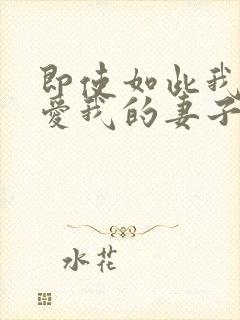 即使如此我
爱我的妻子
水花